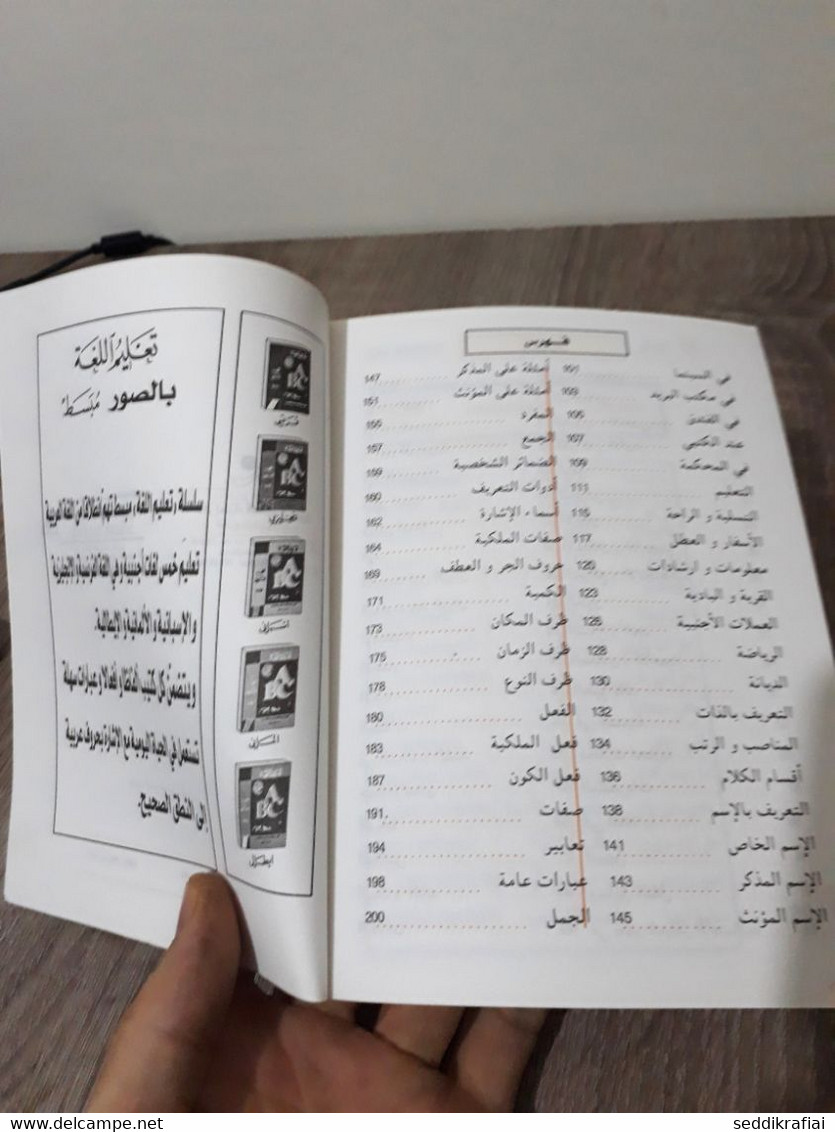 تعليم اللغة
بالصور مبسط
سلسلة «تعليم اللغة» مبسط تهم انطلاقا من اللغة العربية
تعليم خمس لغات أجنبية وهي اللغة الفرنسية والإنجليزية
والإسبانية والألمانية والإيطالية.
ويتضمن كل كتيب ألفاظا وأفعالا وعبارات سهلة
تستعمل في الحياة اليومية مع الإشارة بحروف عربية
إلى النطق الصحيح.
ABC
ABC
ABC
ABC
ABC
فهرس
في السينما
في مكتب البريد
في الفندق
عند الكتبي 107
في المحكمة 109
التعليم 111
التسلية و الراحة 115
الأسفار و العطل 117
معلومات و ارشادات 120
القرية و البادية 123
العملات الأجنبية 126
الرياضة 128
الديانة 130
التعريف بالذات 132
المناصب و الرتب 134
أقسام الكلام 136
التعريف بالإسم 138
الإسم الخاص 141
الإسم المذكر 143
الإسم المؤنث 145
أمثلة على المذكر 147
أمثلة على المؤنث 151
المفرد 155
الجمع 157
الضمائر الشخصية 159
أدوات التعريف 160
أسماء الإشارة 162
صفات الملكية 164
حروف الجر و العطف 169
الكمية 171
ظرف المكان 173
ظرف الزمان 175
ظرف النوع 178
الفعل 180
فعل الملكية 183
فعل الكون 187
صفات 191
تعابير 194
عبارات عامة 198
الجمل 200
www.delcampe.net
seddikrafiai